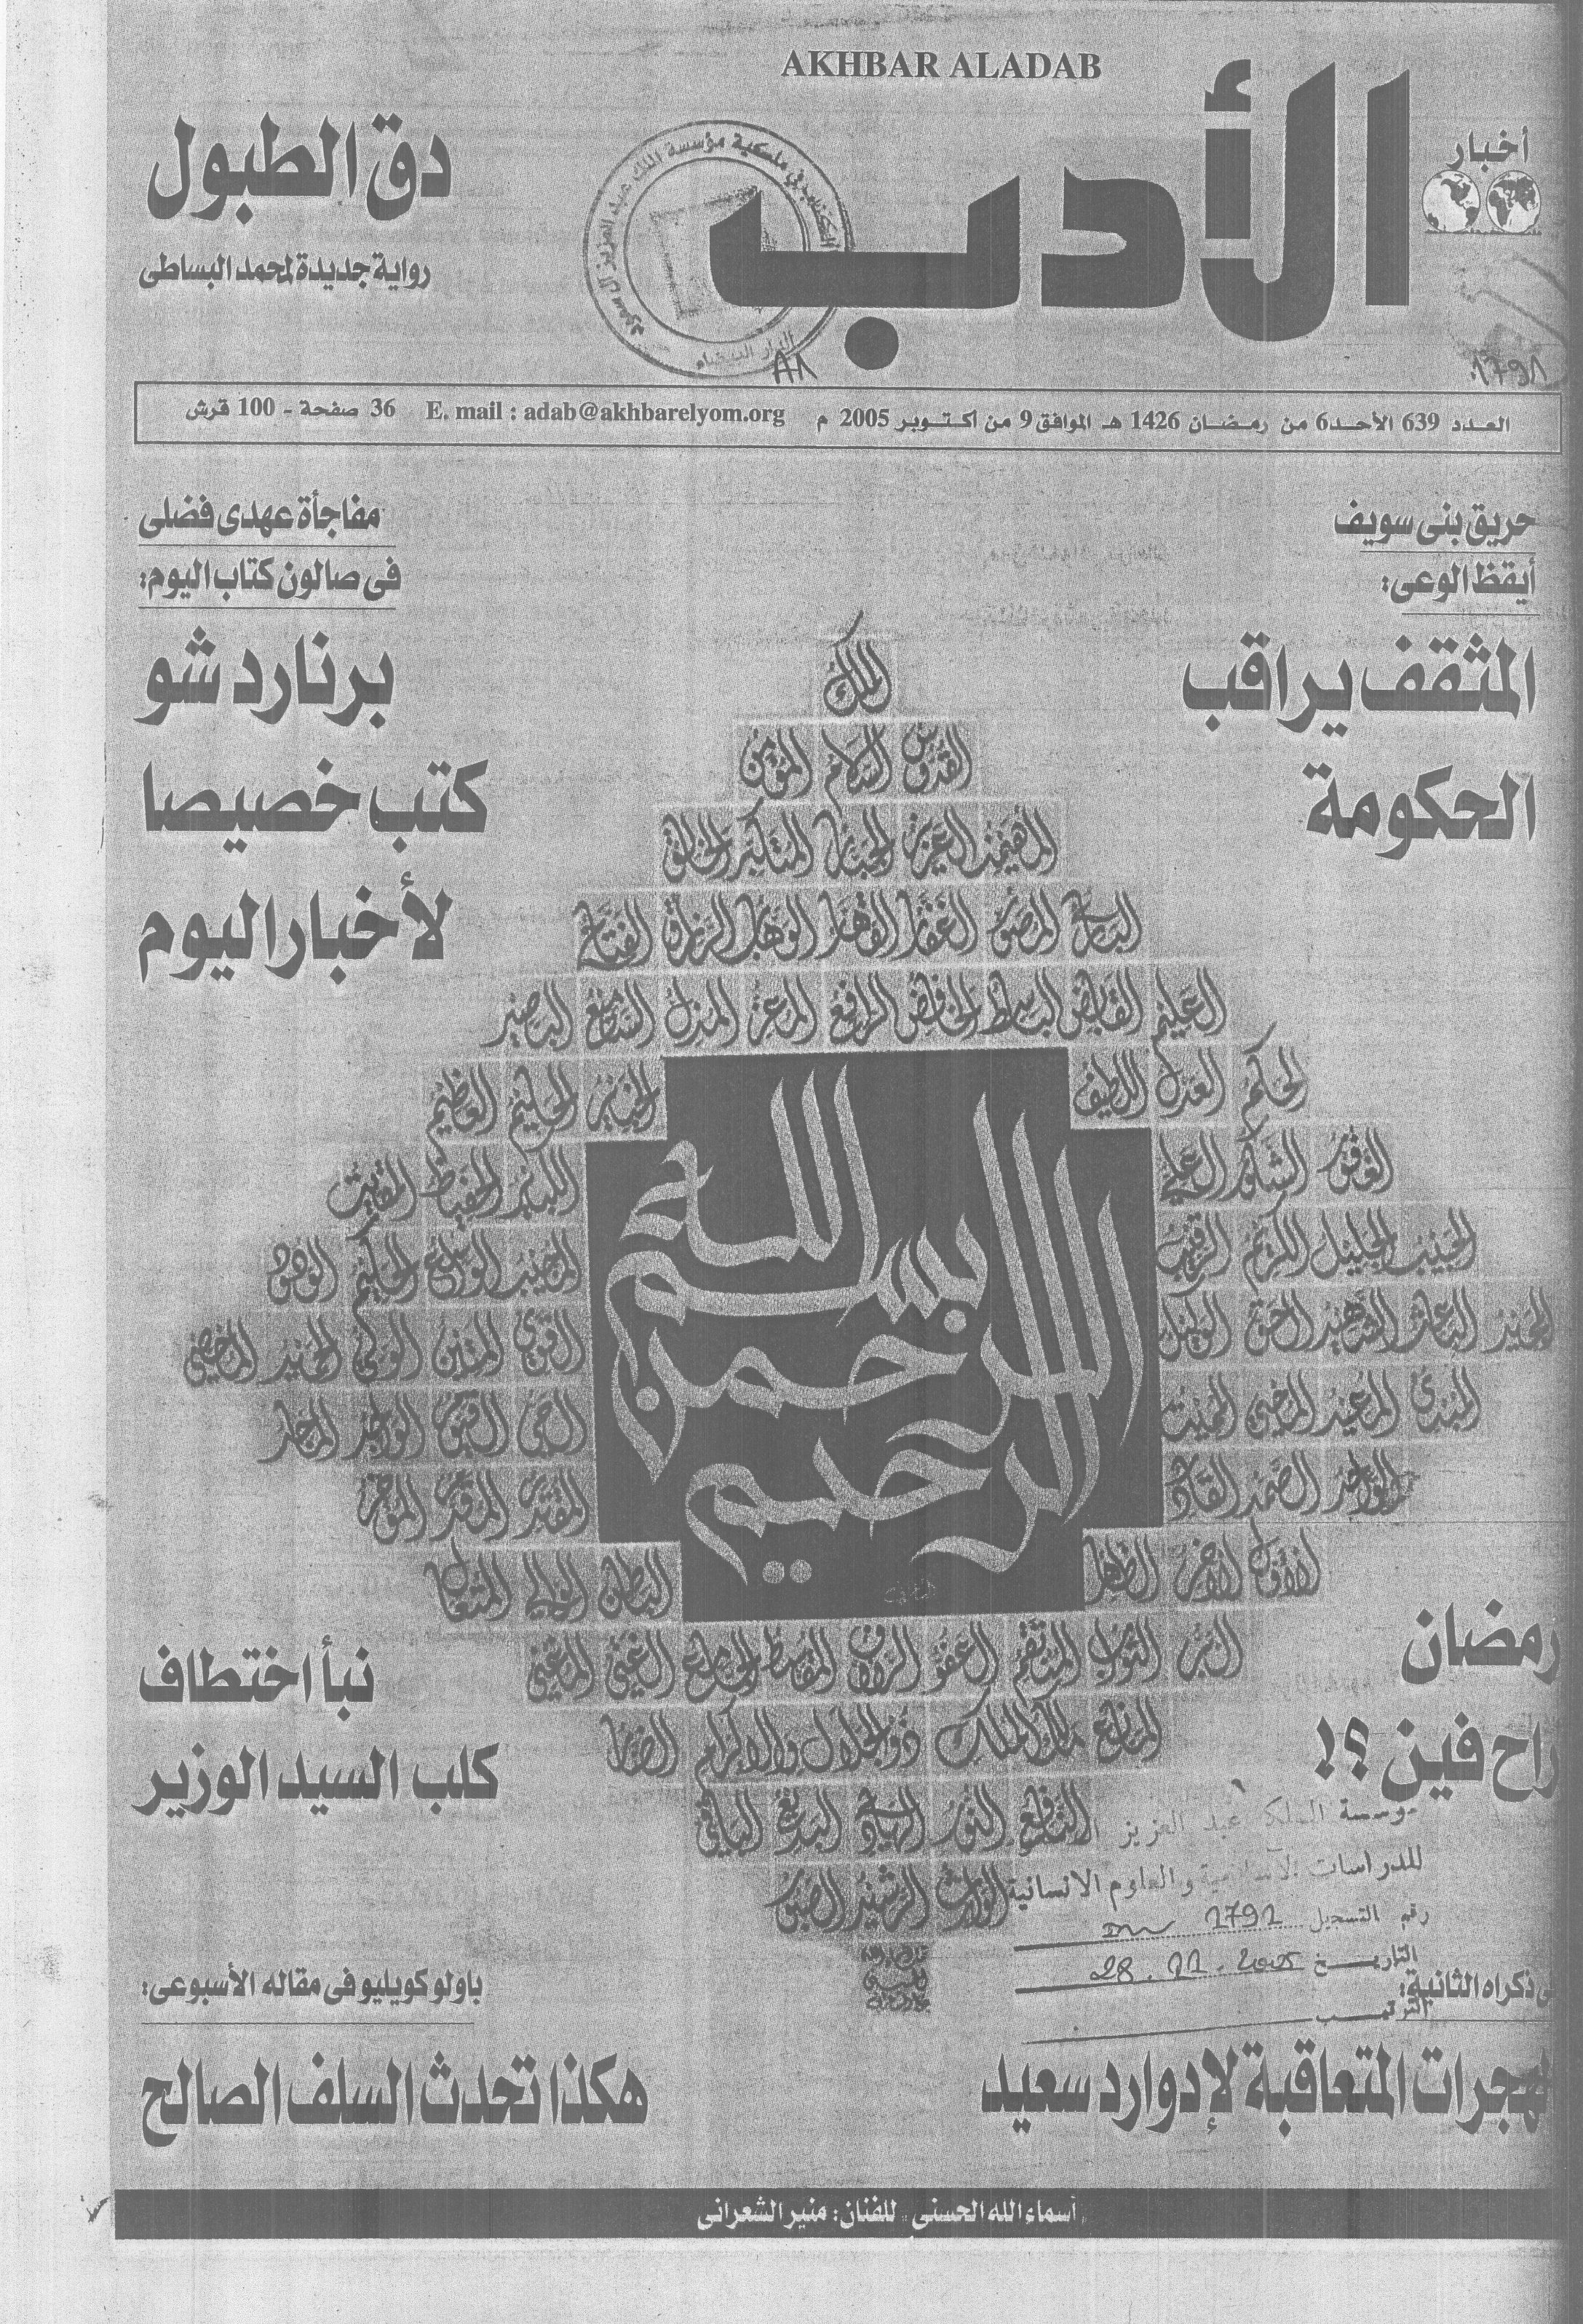 AKHBAR ALADAB
أخبار
الأدب
دق الطبول
رواية جديدة لمحمد البساطى
مؤسسة الملك عبد العزيز آل سعود
الدار البيضاء
العدد 639 الأحد 6 من رمضان 1426 هـ الموافق 9 من أكتوبر 2005 م
E. mail : adab@akhbarelyom.org
36 صفحة - 100 قرش
حريق بنى سويف
أيقظ الوعى:
المثقف يراقب
الحكومة
مفاجأة عهدى فضلى
فى صالون كتاب اليوم:
برنارد شو
كتب خصيصا
لأخبار اليوم
الملك
القدوس السلام المؤمن
المهيمن العزيز الجبار المتكبر الخالق
البارئ المصور الغفار القهار الوهاب الرزاق الفتاح
العليم القابض الباسط الخافض الرافع المعز المذل السامع البصير
الحكم العدل اللطيف الخبير الحليم العظيم
الغفور الشكور العلي الكبير الحفيظ المقيت
الحسيب الجليل الكريم الرقيب المجيب الواسع الحكيم الودود
المجيد الباعث الشهيد الحق الوكيل القوي المتين الولي الحميد المحصي
المبدئ المعيد المحيي المميت الحي القيوم الواجد الماجد
الواحد الصمد القادر المقتدر المقدم المؤخر
الأول الآخر الظاهر الباطن الوالي المتعال
البر التواب المنتقم العفو الرؤوف المقسط الجامع الغني المغني
المانع مالك الملك ذو الجلال والإكرام الضار
النافع النور الهادي البديع الباقي
الوارث الرشيد الصبور
بسم الله
الرحمن
الرحيم
رمضان
راح فين ؟!
نبأ اختطاف
كلب السيد الوزير
مؤسسة الملك عبد العزيز
للدراسات الإسلامية والعلوم الانسانية
رقم التسجيل 1791
التاريخ 28. 11. 2005
الترتيب
باولو كويليو فى مقاله الأسبوعى:
هكذا تحدث السلف الصالح
ذكراه الثانية:
الهجرات المتعاقبة لإدوارد سعيد
"أسماء الله الحسنى" للفنان: منير الشعرانى